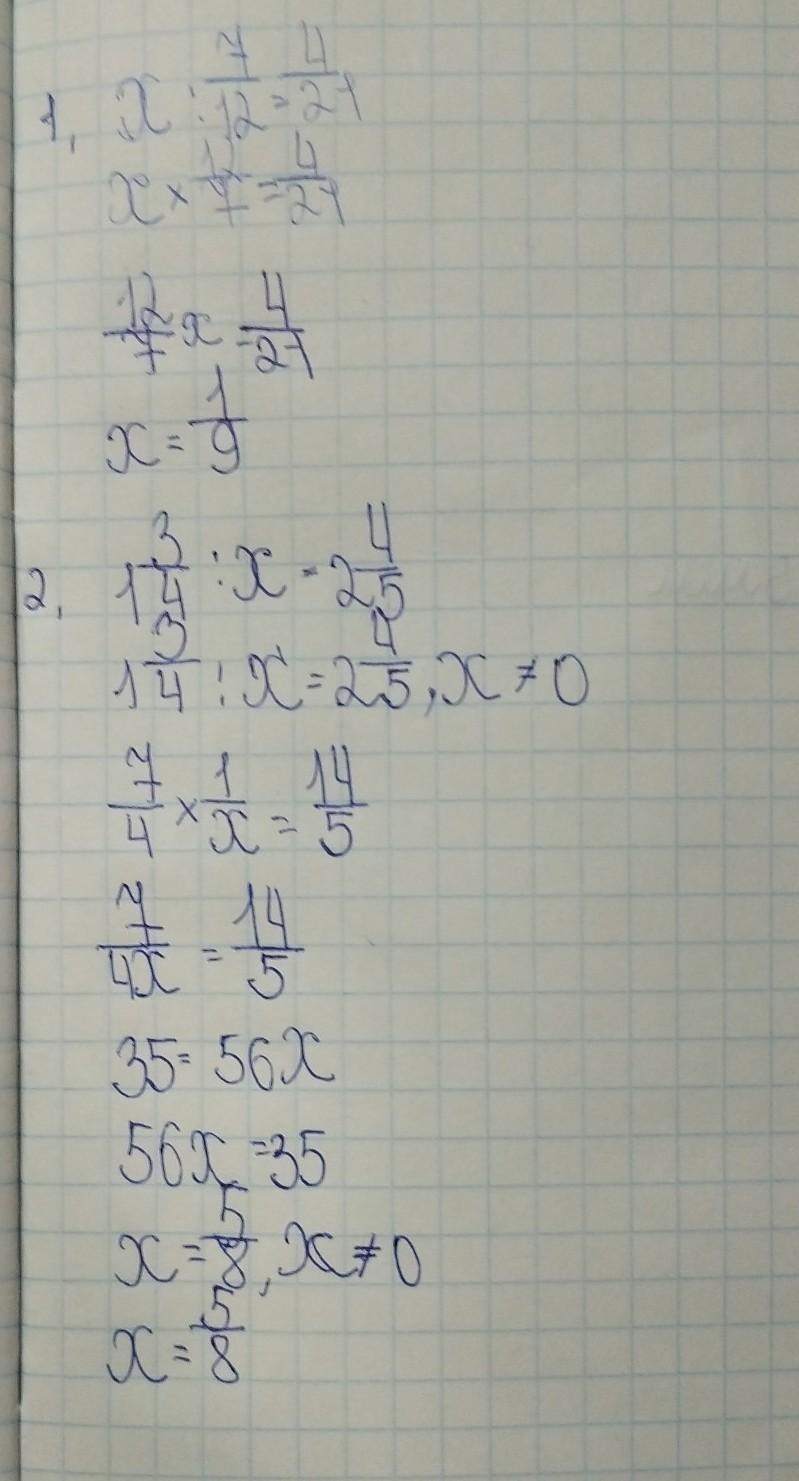 1, x : 7/12 = 4/21
x × 12/7 = 4/21
12/7 x = 4/21
x = 1/9
2, 1 3/4 : x = 2 4/5
1 3/4 : x = 2 4/5, x ≠ 0
7/4 × 1/x = 14/5
7/4x = 14/5
35 = 56x
56x = 35
x = 5/8, x ≠ 0
x = 5/8